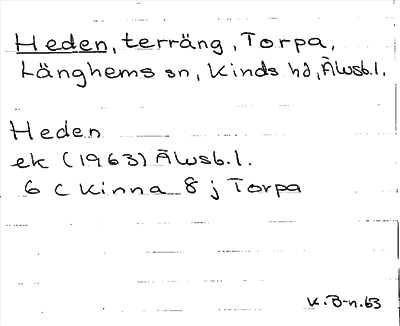 Heden, terräng, Torpa,
Länghems sn, Kinds hd, Älvsb.l.
Heden
ek (1963) Älvsb.l.
6 C Kinna 8 j Torpa
K.B-n.63